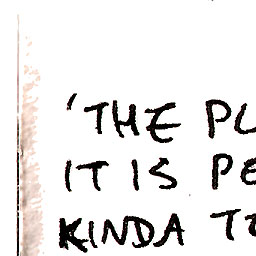 'THE PL
IT IS PE
KINDA T